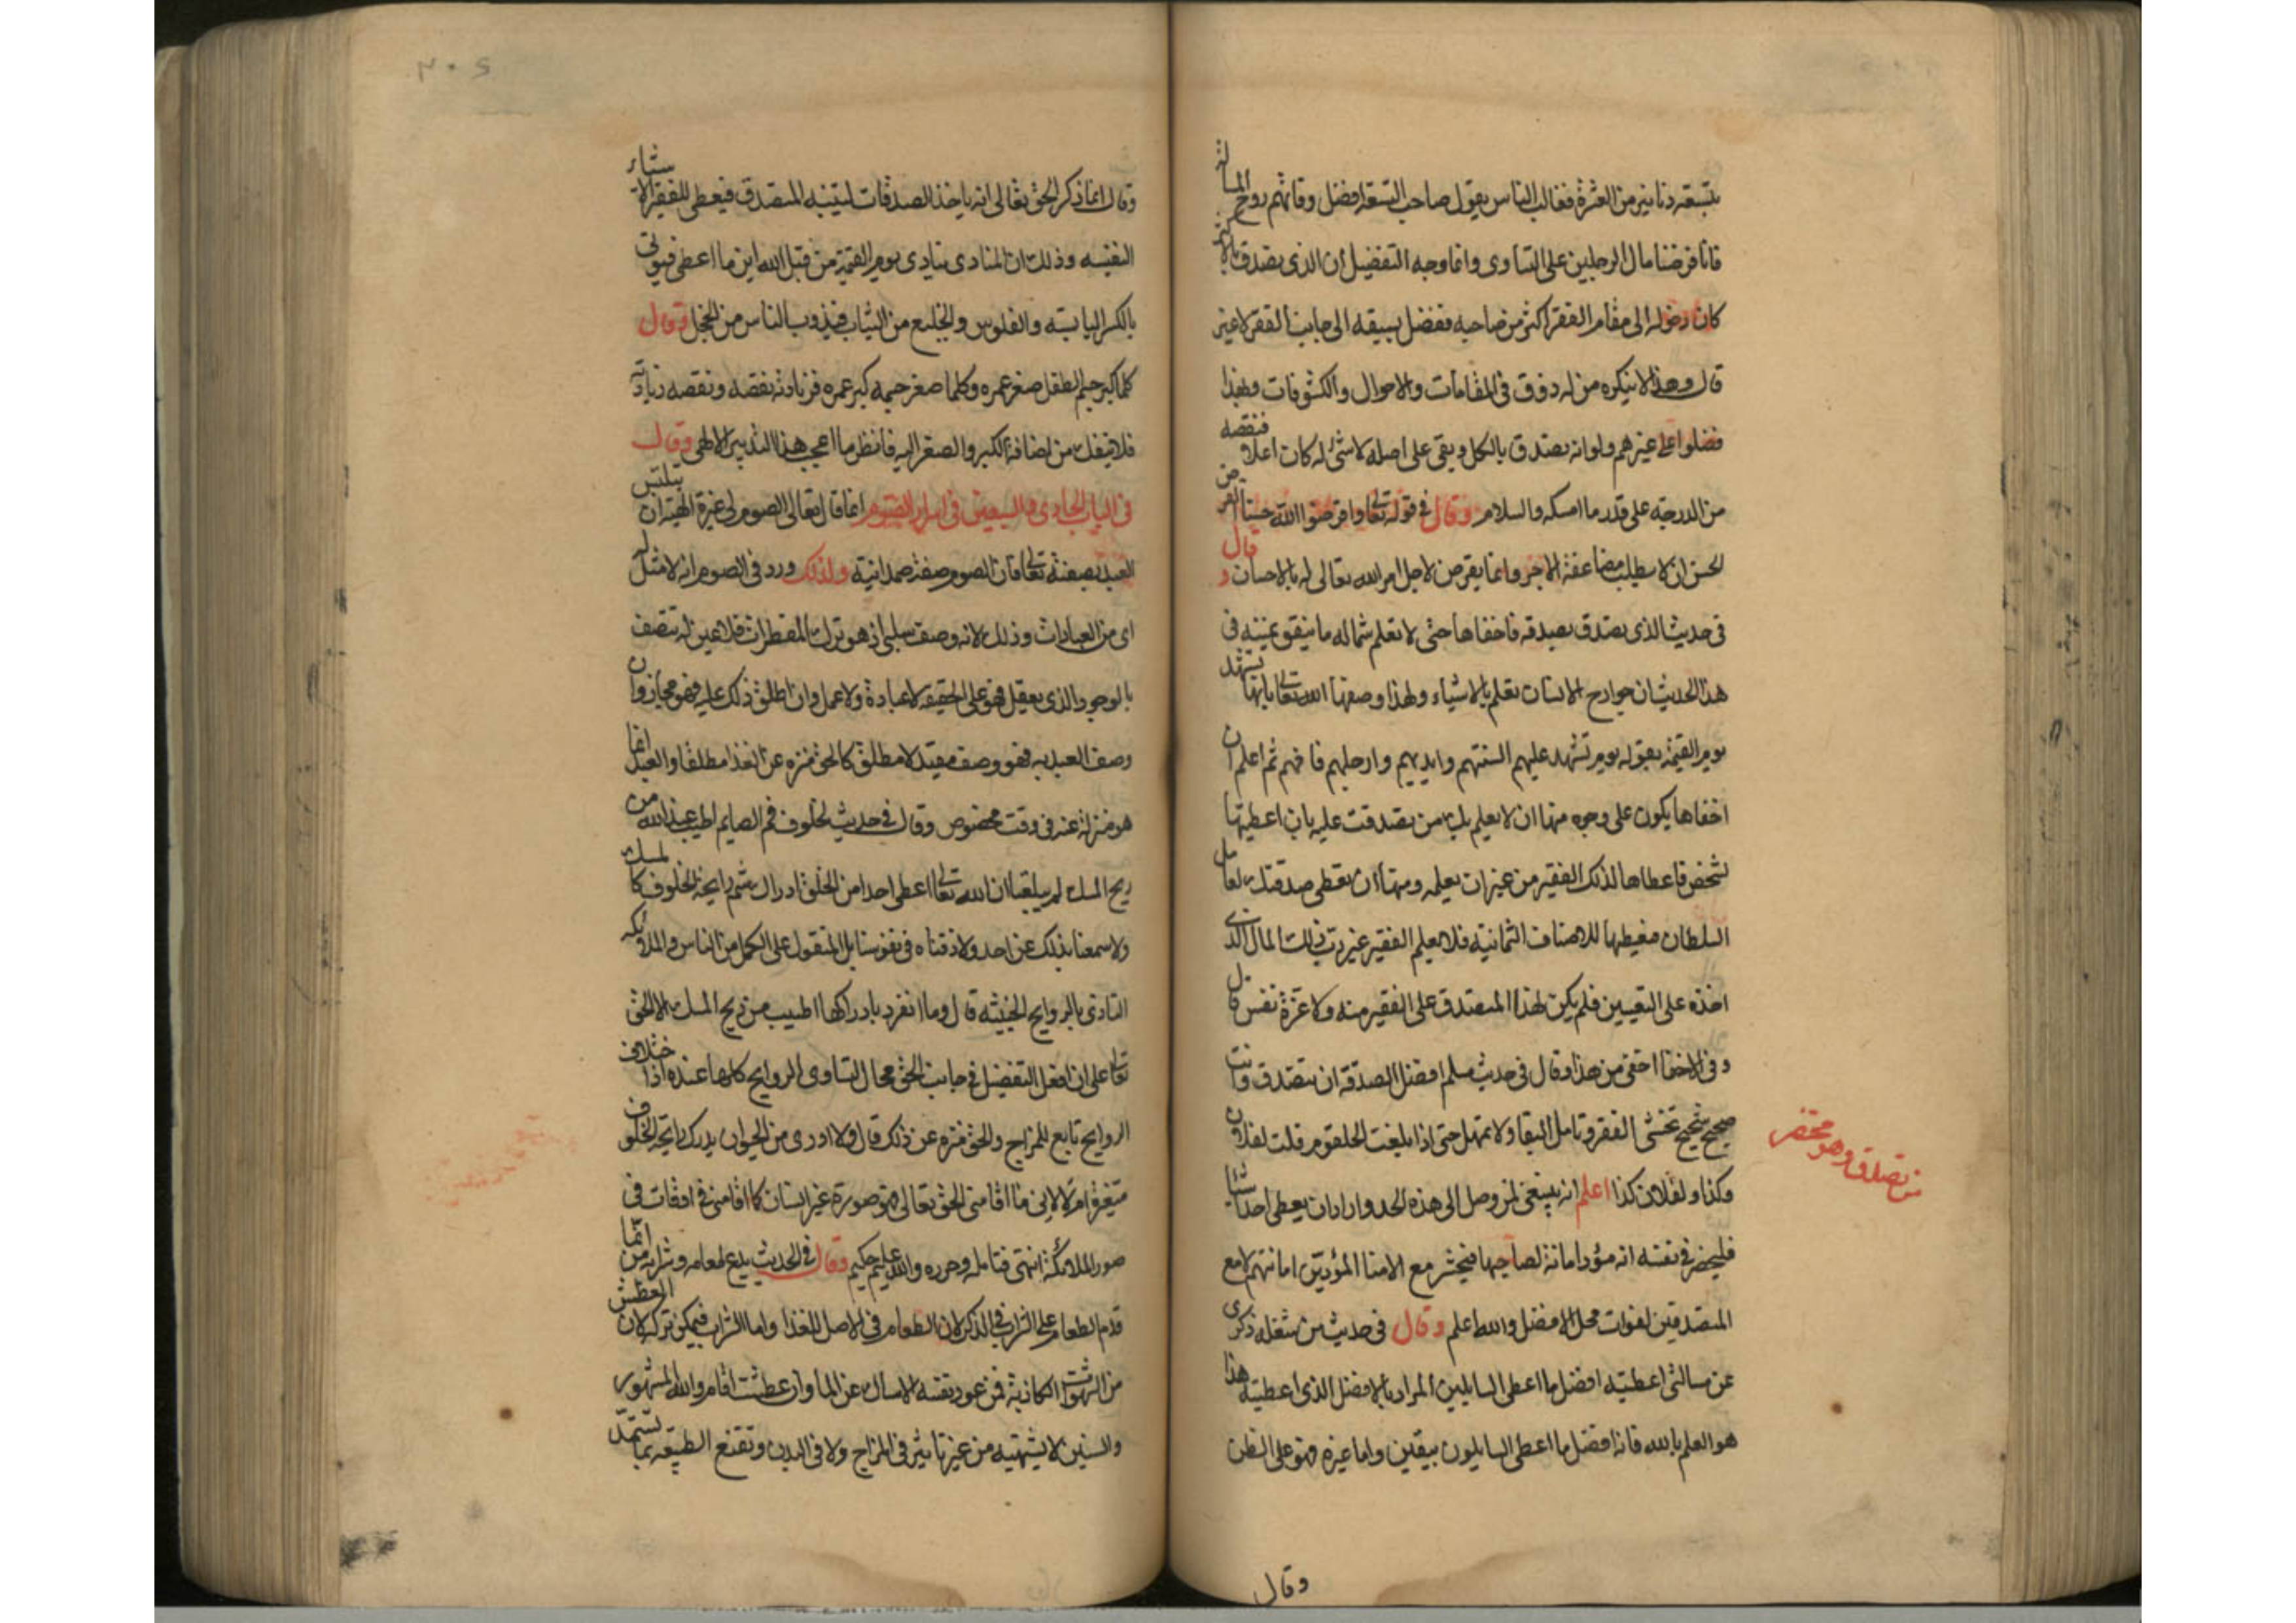 بتسعة دنانير من العشرة فغالب الناس يقول صاحب التسعة افضل وفاتهم روح المسألة
فانا فرضنا مال الرجلين على التساوى وانما وجه التفضيل ان الذى تصدق بالاكثر
كان دخوله الى مقام الفقر اكثر من صاحبه ففضل بسبقه الى جانب الفقر لا غير
قال وهذا لا ينكره من له ذوق فى المقامات والاحوال والكشوفات وبهذا
فضلوا على غيرهم ولو انه تصدق بالكل وبقى على اصله لا شئ له كان اعلا فنقصه
من الدرجة على قدر ما امسكه والسلام وقال فى قوله تعالى واقرضوا الله حسنا القرض
الحسن ان لا يطلب مضاعفة الاجر وانما يقرض لاجل امر الله تعالى له بالاحسان وقال
فى حديث الذى يتصدق بصدقة فاخفاها حتى لا تعلم شماله ما ينفق يمينه فى
هذا الحديث ان جوارح الانسان تعلم بالاشياء ولهذا وصفها الله تعالى بانها تشهد
يوم القيمة بقوله يوم تشهد عليهم السنتهم وايديهم وارجلهم فافهم ثم اعلم ان
اخفاها يكون على وجوه منها ان لا يعلم بك من تصدقت عليه بان اعطيتها
لشخص فاعطاها لذلك الفقير من غير ان يعلمه ومنها ان تعطى صدقتك لعامل
السلطان فيعطيها للاصناف الثمانية فلا يعلم الفقير عين رب ذلك المال الذى
اخذه على التعيين فلم يكن لهذا المتصدق على الفقير منه ولا عزة نفس قال
وفى الاخفا اخفى من هذا وقال فى حديث مسلم افضل الصدقة ان تتصدق وانت
صحيح شحيح تخشى الفقر وتامل البقا ولا تمهل حتى اذا بلغت الحلقوم قلت لفلان
وكذا ولفلان كذا اعلم انه ينبغى لمن وصل الى هذه الحد واراد ان يعطى احدا شيئا
فليحضر فى نفسه انه مؤد امانة لصاحبها فيحشر مع الامنا المؤدين امانتهم لا مع
المتصدقين لفوات محل الافضل والله اعلم وقال فى حديث من شغله ذكرى
عن مسالتى اعطيته افضل ما اعطى السايلين المراد بالافضل الذى اعطيته هذا
هو العلم بالله فانه افضل ما اعطى السايلون بيقين واما غيره فهو على الظن
وقال
من تصدق وهو محتضر
٣٠٤
وقال انما ذكر الحق تعالى انه ياخذ الصدقات ليتنبه المتصدق فيعطى للفقير الاشياء
النفيسة وذلك ان المنادى ينادى يوم القيمة من قبل الله اين ما اعطى فيوتى
بالكسر اليابسة والفلوس والخليع من الثياب فيذوب الناس من الخجل وقال
كلما كبر جسم الطفل صغر عمره وكلما صغر جسمه كبر عمره فزيادته نقصه ونقصه زيادته
فلا تغفل من اضافة الكبر والصغر اليه فانظر ما اعجب هذا التدبير الالهى وقال
فى الباب الحادى والسبعين فى اسرار الصوم انما قال تعالى الصوم لى غيرة الهية ان يتلبس
العبد بصفته تعالى فان الصوم صفة صمدانية ولذلك ورد فى الصوم انه لا مثل له
اى من العبادات وذلك لانه وصف سلبى اذ هو ترك المفطرات فلا عين له تتصف
بالوجود الذى يعقل فهو على الحقيقة لا عبادة ولا عمل وان اطلق ذلك عليه فهو مجاز وان
وصف العبد به فهو وصف مقيد لا مطلق كالحق منزه عن الغذا مطلقا والعبد انما
هو منزه عنه فى وقت مخصوص وقال فى حديث لخلوف فم الصايم اطيب عند الله من
ريح المسك لم يبلغنا ان الله تعالى اعطى احدا من الخلق ادراك شم رايحة الخلوف كالمسك
ولا سمعنا بذلك عن احد ولا ذقناه فى نفوسنا بل المنقول على الكمل من الناس والملائكة
التاذى بالروايح الخبيثة قال وما انفرد بادراكها اطيب من ريح المسك الا الحق
تعالى على ان افعل التفضيل فى جانب الحق محال لتساوى الروايح كلها عنده اذا ختلاف
الروايح تابع للمزاج والحق منزه عن ذلك قال ولا ادرى من الحيوان يدرك رايحة الخلوف
متغيرة ام لا لانى ما اقامنى الحق تعالى فى صورة غير انسان كما اقامنى فى اوقات فى
صور الملائكة انتهى فتامله وحرره والله عليم حكيم وقال فى الحديث يدع طعامه وشرابه من انما
قدم الطعام على الشراب فى الذكر لان الطعام فى الاصل للغذا واما الشراب فيمكن تركه لان العطش
من الشهوات الكاذبة فمن عود نفسه الامساك عن الما وان عطشت اقام والله الشهور
والسنين لا يشتهيه من غير تاثير فى المزاج ولا فى البدن وتقنع الطبيعة بما تستمد